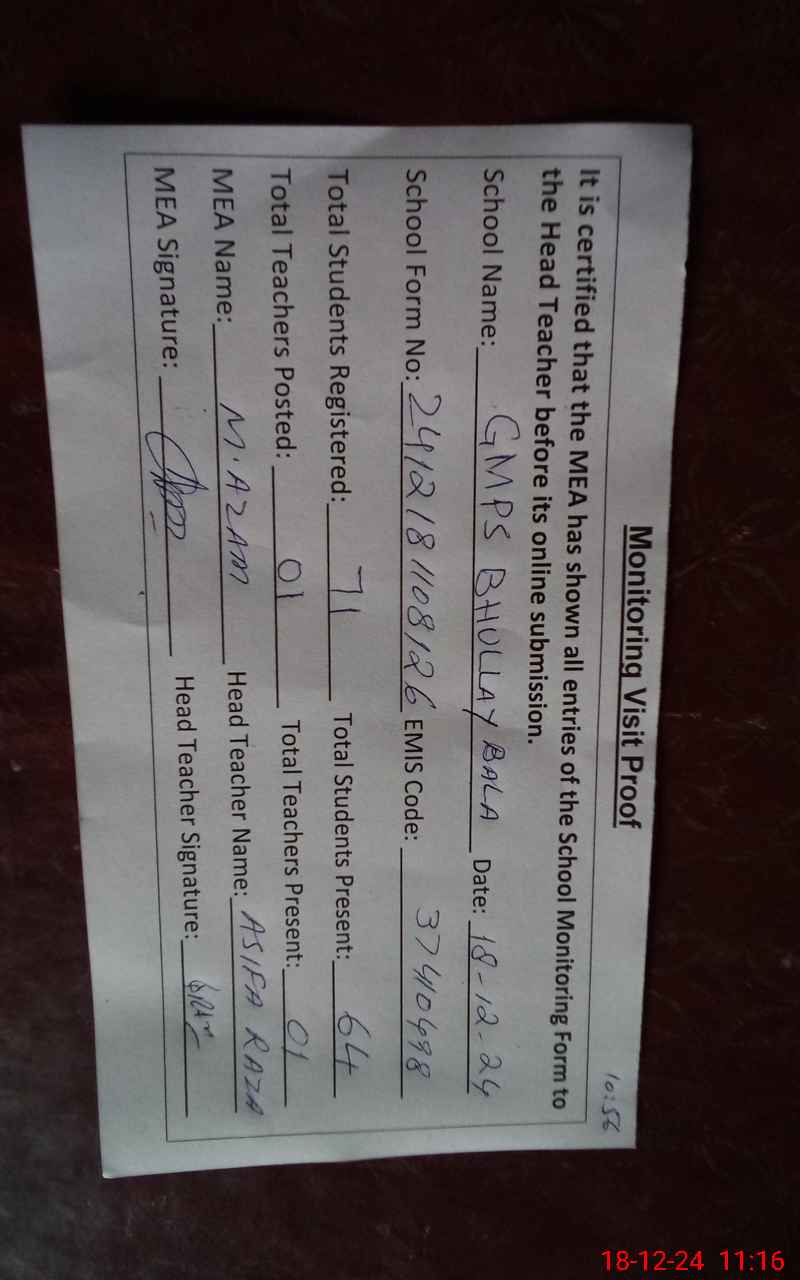 10:56
Monitoring Visit Proof
It is certified that the MEA has shown all entries of the School Monitoring Form to
the Head Teacher before its online submission.
School Name: GMPS BHULLAY BALA Date: 18-12-24
School Form No: 2412181108126 EMIS Code: 37410498
Total Students Registered: 71 Total Students Present: 64
Total Teachers Posted: 01 Total Teachers Present: 01
MEA Name: M.AZAM Head Teacher Name: ASIFA RAZA
MEA Signature: Head Teacher Signature:
18-12-24 11:16